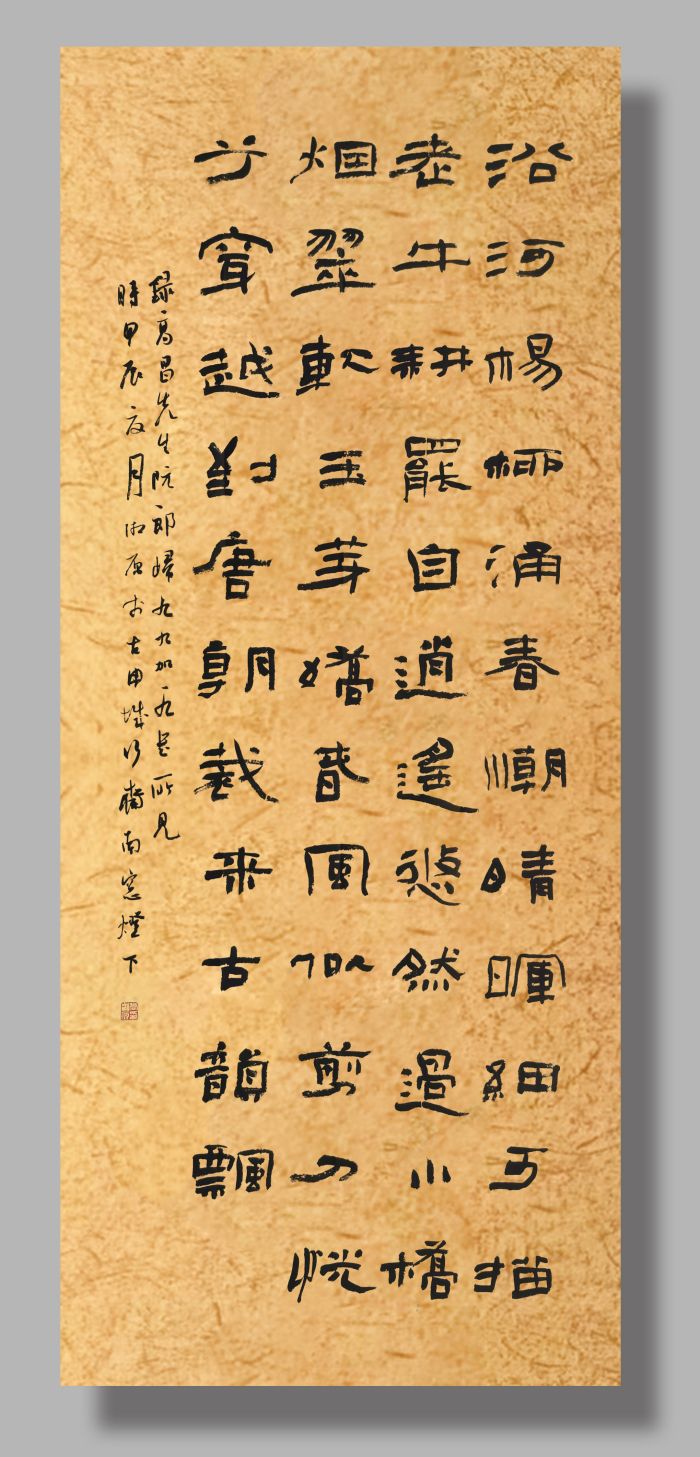 沿河楊柳涌春潮晴暉細可描
老牛耕罷自逍遙悠然過小橋
烟翠軟玉芽嬌春風似剪刀恍
兮穿越到唐朝裁来古韻飄
錄高昌先生阮郎歸九九加一九所見
時甲辰夏月於古申城南窓燈下